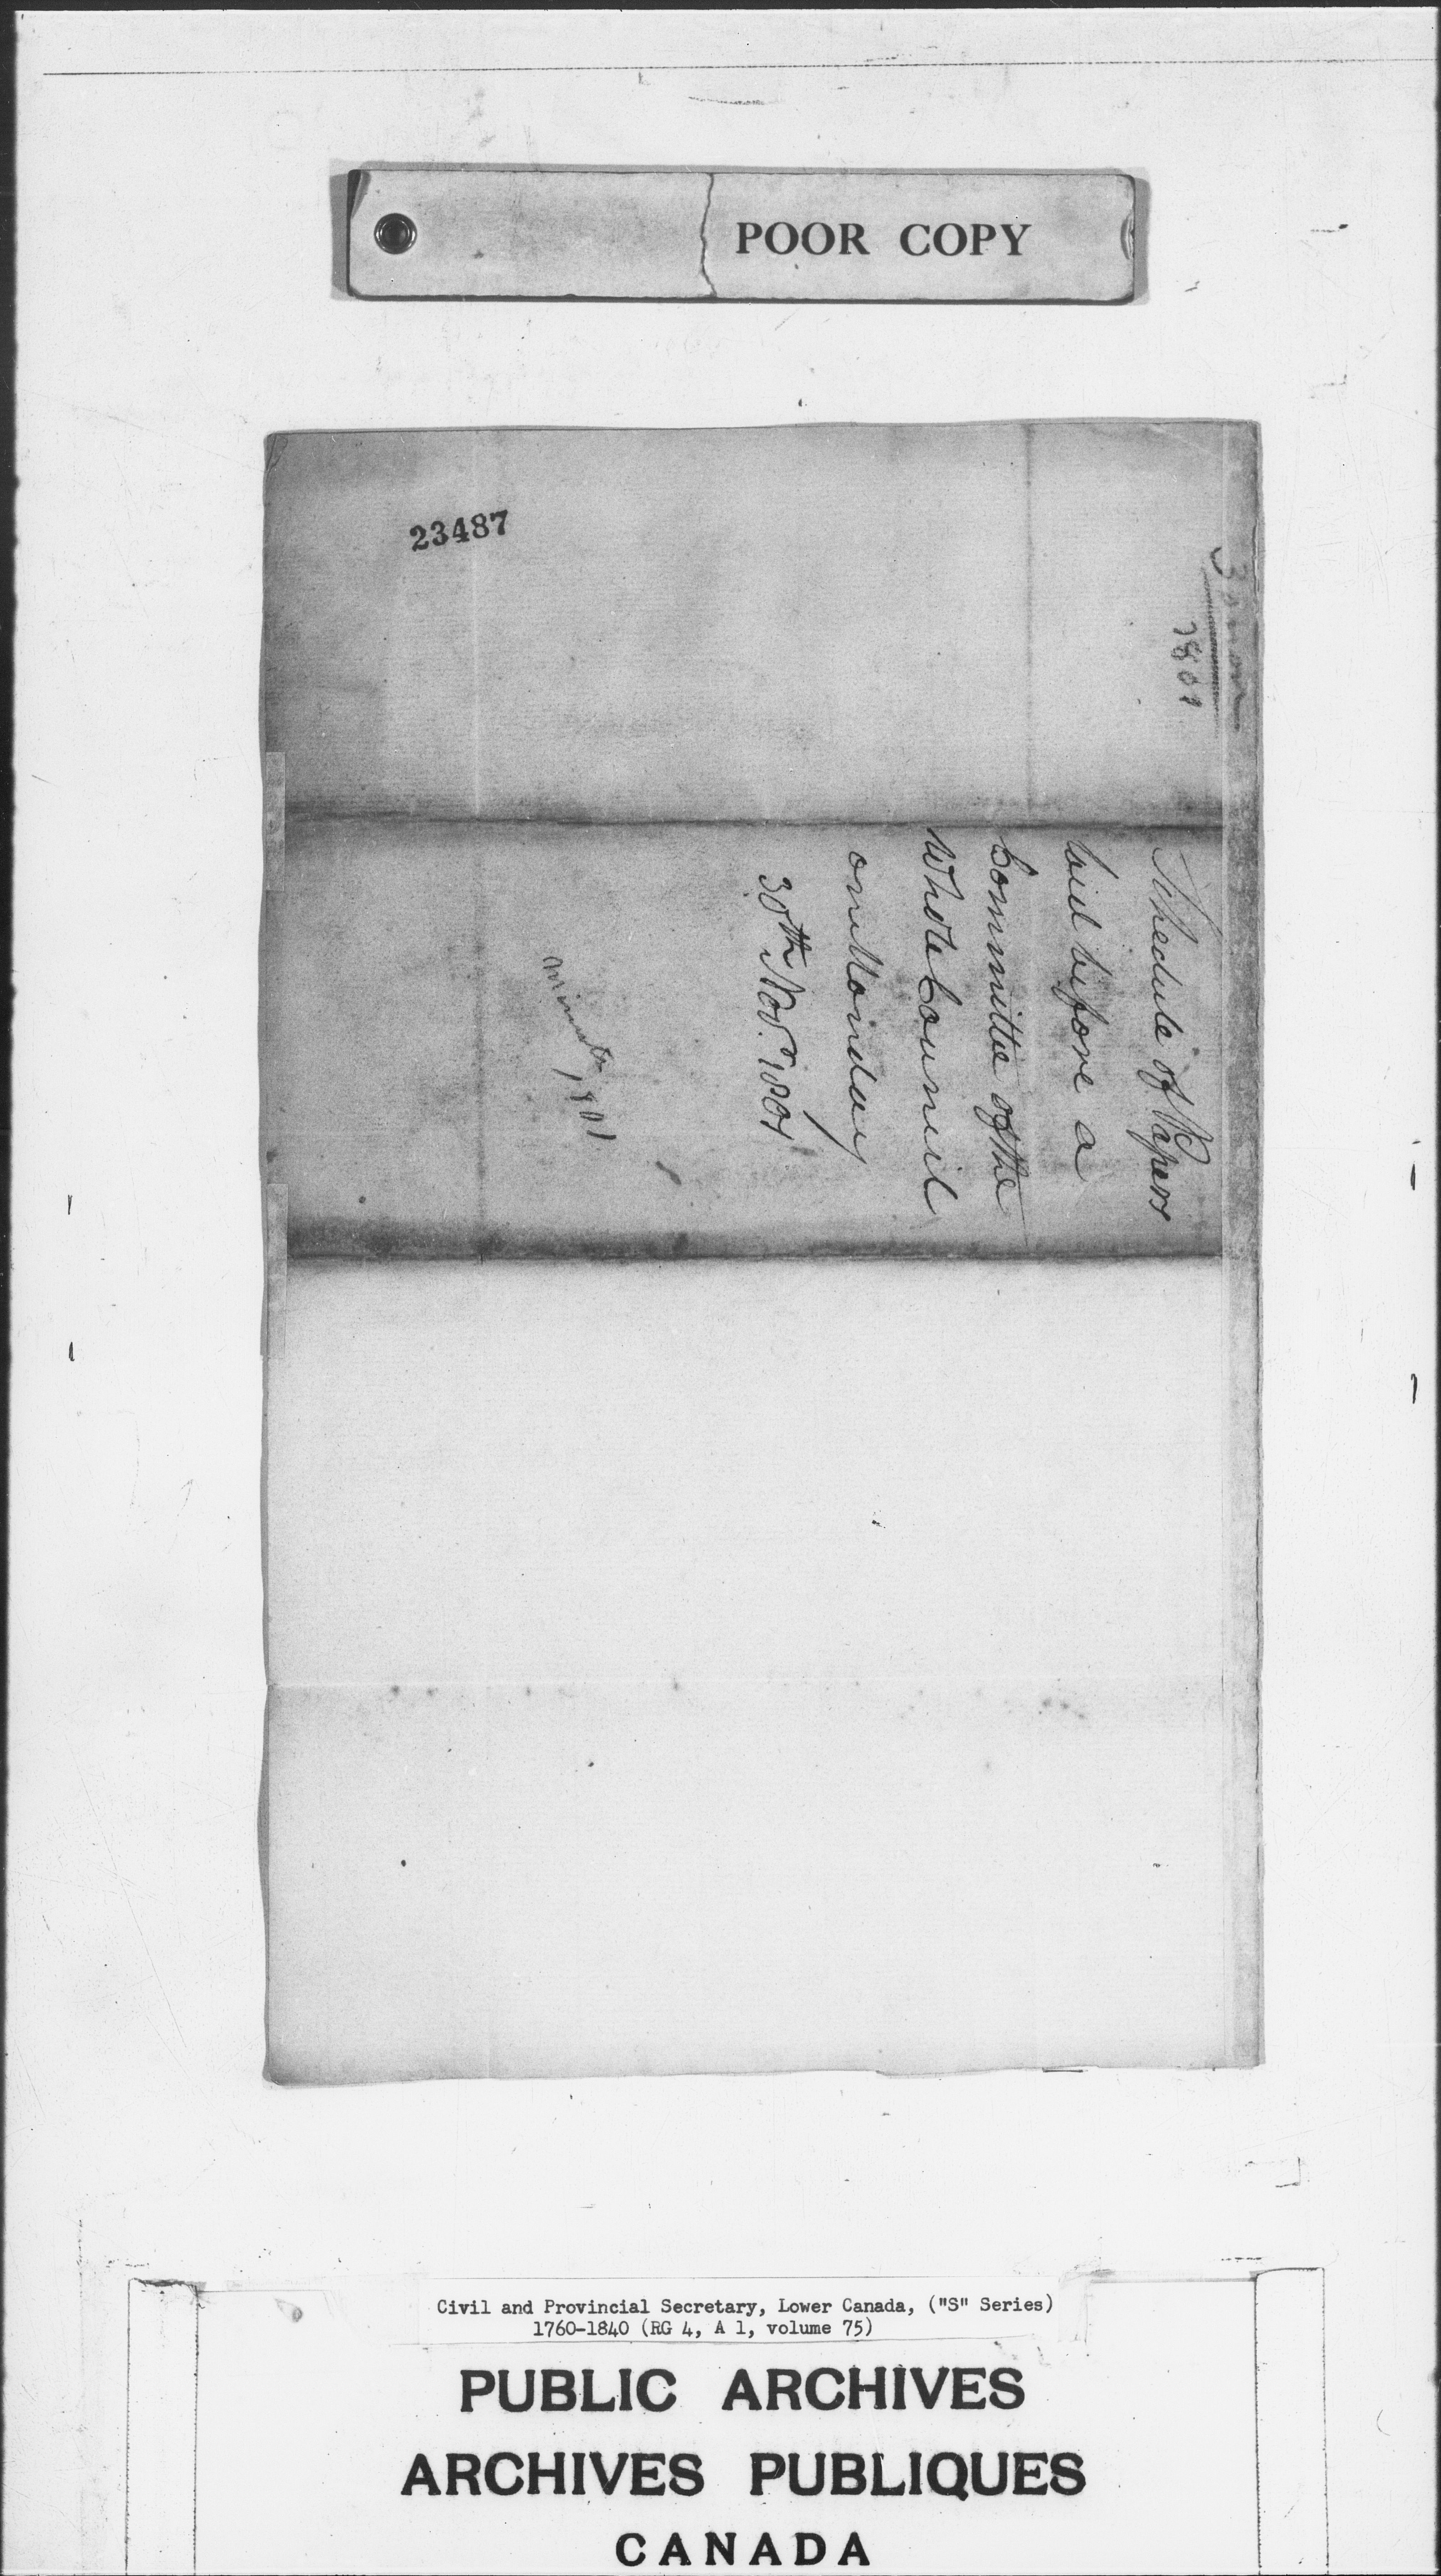 POOR COPY
23487
1801
Schedule of Papers
laid before a
Committee of the
Whole Council
on Monday
30th Nov.r 1801
1801
Civil and Provincial Secretary, Lower Canada, ("S" Series)
1760-1840 (RG 4, A 1, volume 75)
PUBLIC ARCHIVES
ARCHIVES PUBLIQUES
CANADA